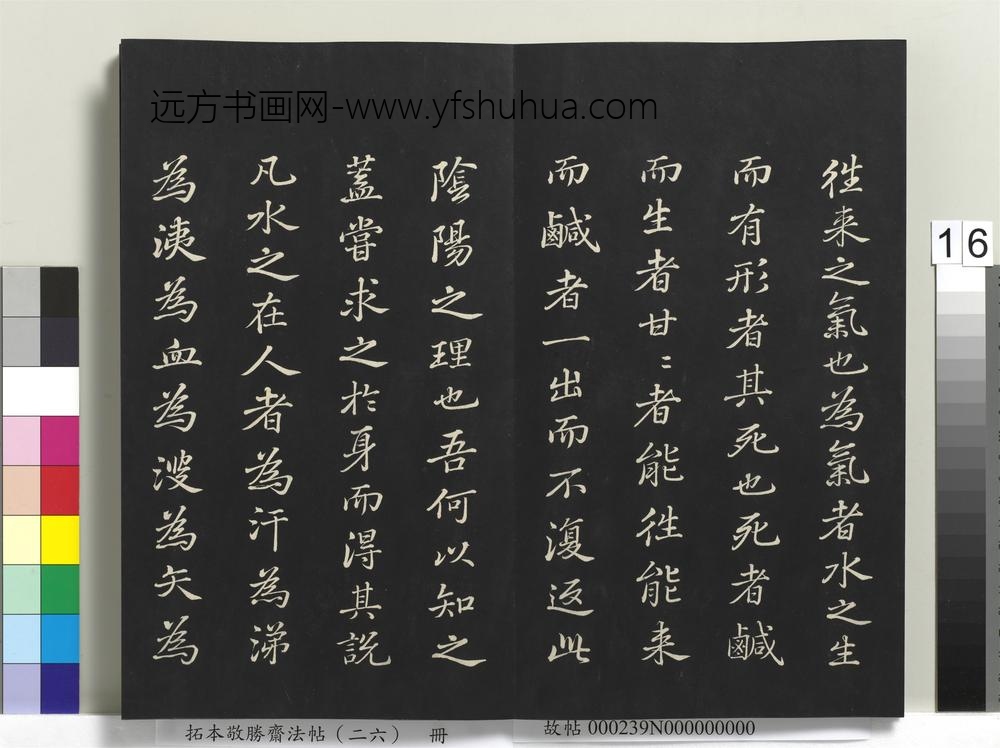 远方书画网-www.yfshuhua.com
往来之氣也為氣者水之生
而有形者其死也死者鹹
而生者甘〻者能往能来
而鹹者一出而不復返此
陰陽之理也吾何以知之
蓋嘗求之於身而得其說
凡水之在人者為汗為涕
為洟為血為溲為矢為
16
拓本敬勝齋法帖(二六) 冊
故帖000239N000000000